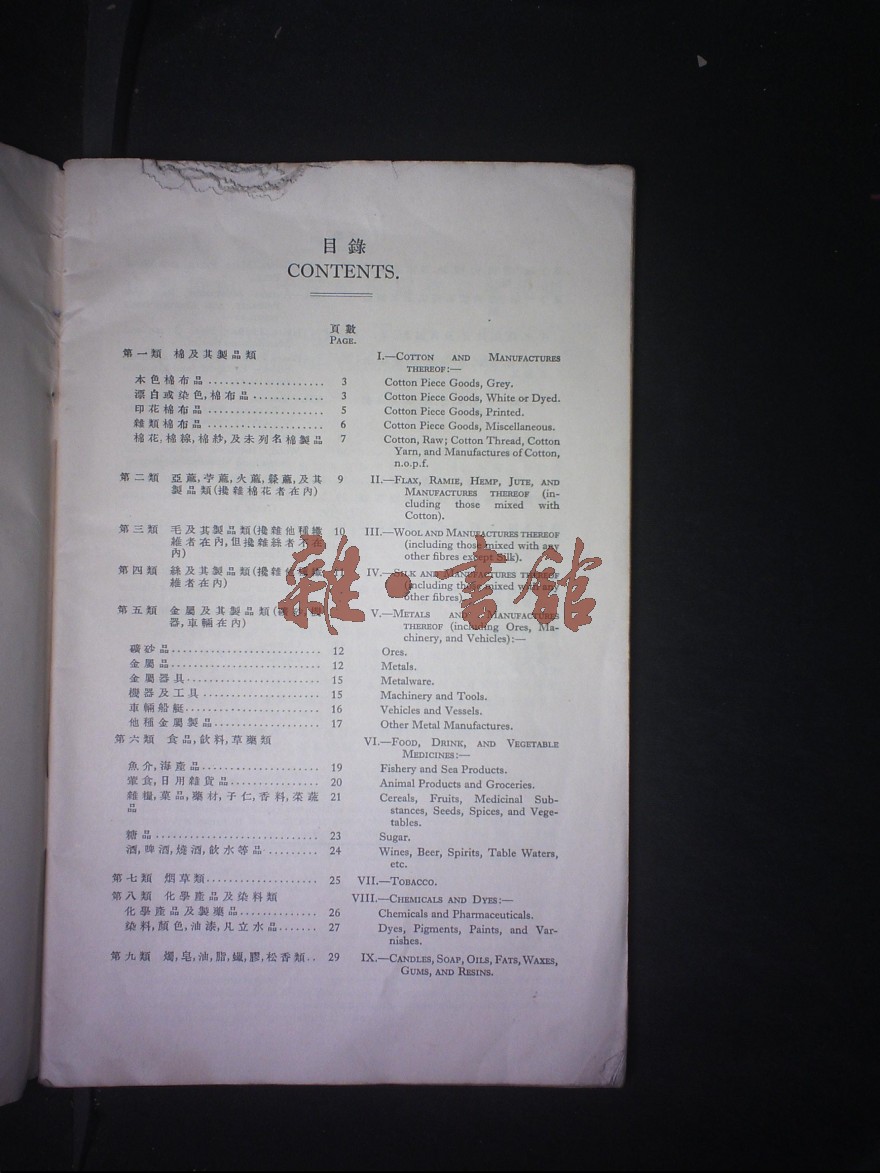 目錄
CONTENTS.
頁數
PAGE.
第一類 棉及其製品類 I.—COTTON AND MANUFACTURES
THEREOF:—
本色棉布品...................... 3 Cotton Piece Goods, Grey.
漂白或染色,棉布品............. 3 Cotton Piece Goods, White or Dyed.
印花棉布品...................... 5 Cotton Piece Goods, Printed.
雜類棉布品...................... 6 Cotton Piece Goods, Miscellaneous.
棉花,棉線,棉紗,及未列名棉製品 7 Cotton, Raw; Cotton Thread, Cotton
Yarn, and Manufactures of Cotton,
n.o.p.f.
第二類 亞蔴,苧蔴,火蔴,蔴,及其 9 II.—FLAX, RAMIE, HEMP, JUTE, AND
製品類(攙雜棉花者在內) MANUFACTURES THEREOF (in-
cluding those mixed with
Cotton).
第三類 毛及其製品類(攙雜他種纖 10 III.—WOOL AND MANUFACTURES THEREOF
維者在內,但攙雜絲者不在 (including those mixed with any
內) other fibres except Silk).
第四類 絲及其製品類(攙雜他種纖 IV.—SILK AND MANUFACTURES THEREOF
維者在內) (including those mixed with any
other fibres)
第五類 金屬及其製品類(礦砂,機 V.—METALS AND MANUFACTURES
器,車輛在內) THEREOF (including Ores, Ma-
chinery, and Vehicles):—
礦砂品........................... 12 Ores.
金屬品........................... 12 Metals.
金屬器具........................ 15 Metalware.
機器及工具..................... 15 Machinery and Tools.
車輛船艇........................ 16 Vehicles and Vessels.
他種金屬製品................... 17 Other Metal Manufactures.
第六類 食品,飲料,草藥類 VI.—FOOD, DRINK, AND VEGETABLE
MEDICINES:—
魚介,海產品..................... 19 Fishery and Sea Products.
葷食,日用雜貨品................ 20 Animal Products and Groceries.
雜糧,菓品,藥材,子仁,香料,菜蔬 21 Cereals, Fruits, Medicinal Sub-
品 stances, Seeds, Spices, and Vege-
tables.
糖品............................. 23 Sugar.
酒,啤酒,燒酒,飲水等品......... 24 Wines, Beer, Spirits, Table Waters,
etc.
第七類 烟草類.................... 25 VII.—TOBACCO.
第八類 化學產品及染料類 VIII.—CHEMICALS AND DYES:—
化學產品及製藥品.............. 26 Chemicals and Pharmaceuticals.
染料,顏色,油漆,凡立水品....... 27 Dyes, Pigments, Paints, and Var-
nishes.
第九類 燭,皂,油,脂,蠟,膠,松香類.. 29 IX.—CANDLES, SOAP, OILS, FATS, WAXES,
GUMS, AND RESINS.
雜·書館